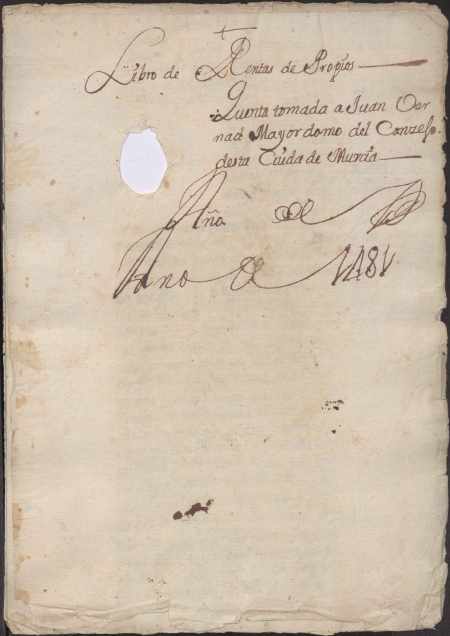 Libro de Rentas de Propios
Quenta tomada a Juan Ber
nad Mayordomo del Conzejo
desta Ciudad de Murcia
Año de
Año de 1481